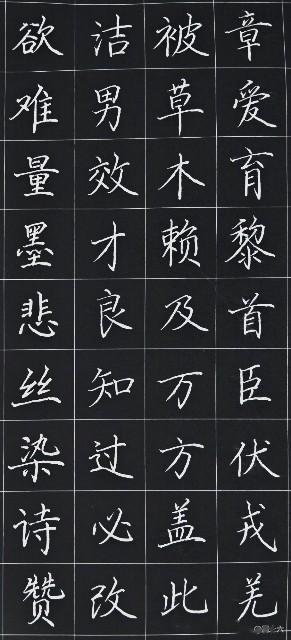 章爱育黎首臣伏戎羌
被草木赖及万方盖此
洁男效才良知过必改
欲难量墨悲丝染诗赞